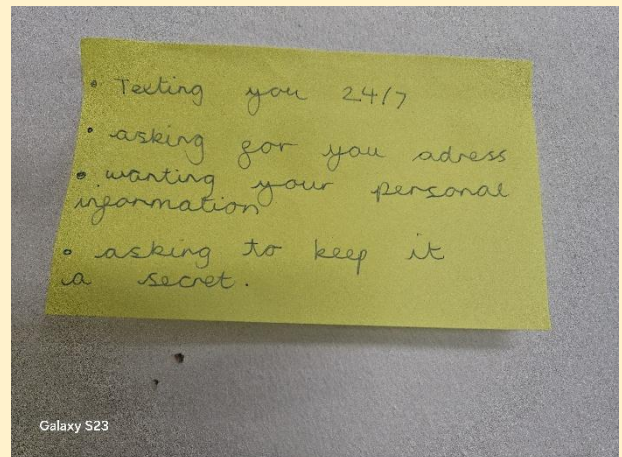 • Texting you 24/7
• asking for you adress
• wanting your personal
information
• asking to keep it
a secret.
Galaxy S23